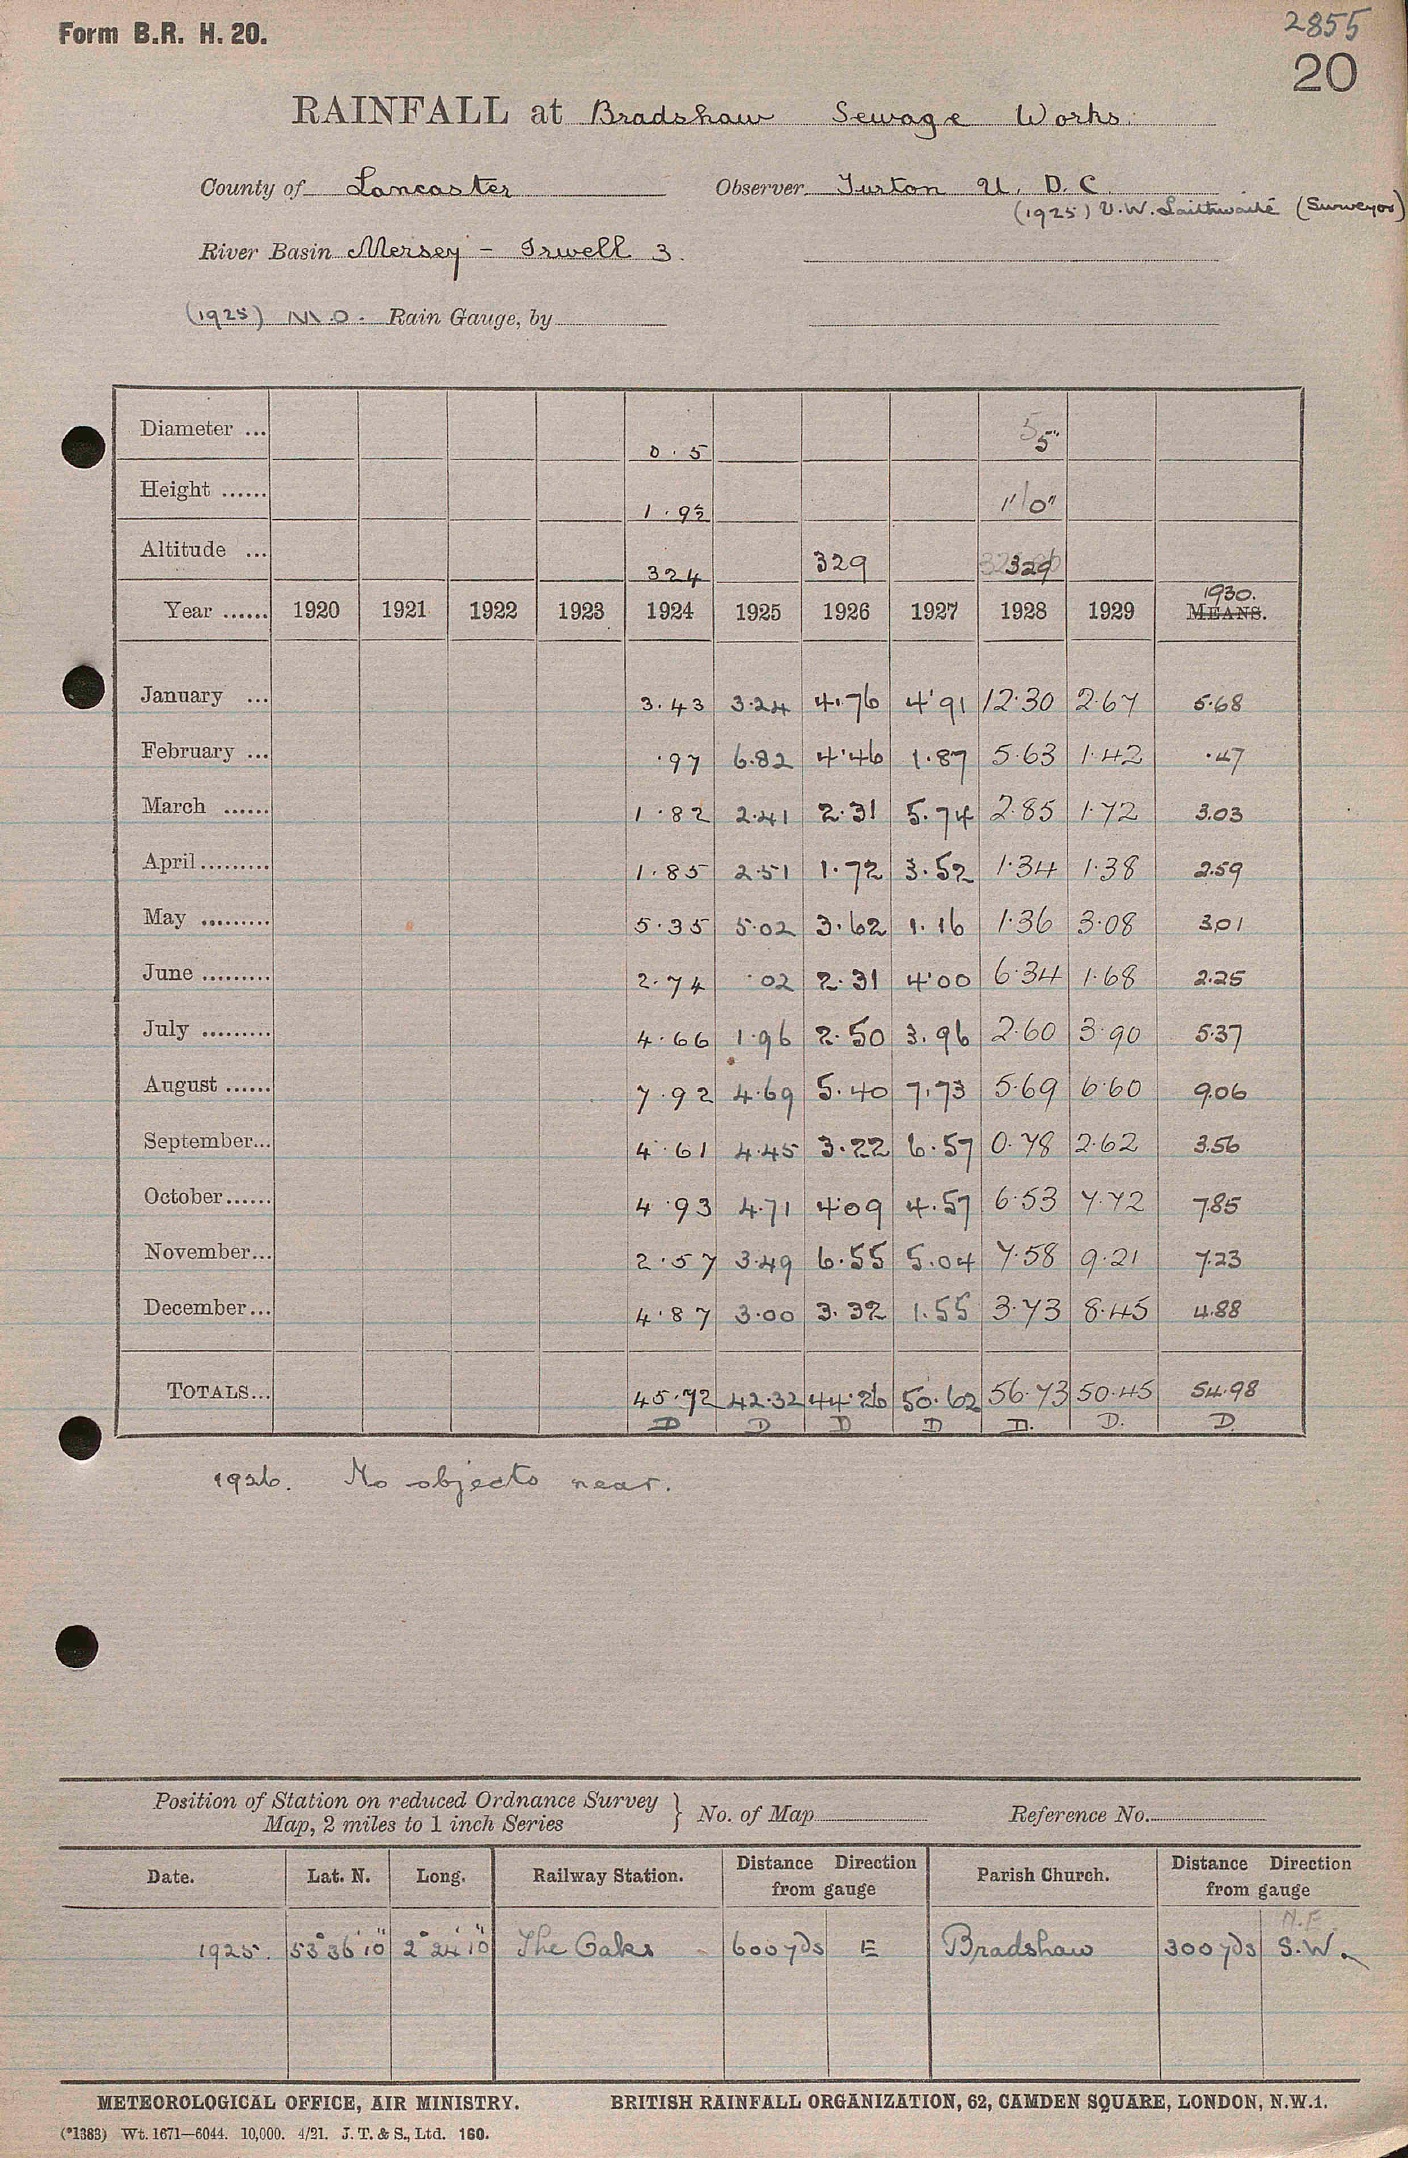 Form B.R. H. 20.
2855
20
RAINFALL at Bradshaw Sewage Works.
County of Lancaster Observer Turton U. D. C.
(1925) V.W. Laithwaite (Surveyor)
River Basin Mersey - Irwell 3.
(1925) M.O. Rain Gauge, by
Diameter ... 0.5 5 5"
Height ...... 1.9½ 1'/0"
Altitude ... 324 329 329
Year ...... 1920 1921 1922 1923 1924 1925 1926 1927 1928 1929 1930. MEANS.
January ... 3.43 3.24 4.76 4.91 12.30 2.67 5.68
February ... .97 6.82 4.46 1.87 5.63 1.42 .47
March ...... 1.82 2.41 2.31 5.74 2.85 1.72 3.03
April ......... 1.85 2.51 1.72 3.52 1.34 1.38 2.59
May ......... 5.35 5.02 3.62 1.16 1.36 3.08 3.01
June ......... 2.74 .02 2.31 4.00 6.34 1.68 2.25
July ......... 4.66 1.96 2.50 3.96 2.60 3.90 5.37
August ...... 7.92 4.69 5.40 7.73 5.69 6.60 9.06
September... 4.61 4.45 3.22 6.57 0.78 2.62 3.56
October...... 4.93 4.71 4.09 4.57 6.53 7.72 7.85
November... 2.57 3.49 6.55 5.04 7.58 9.21 7.23
December... 4.87 3.00 3.32 1.55 3.73 8.45 4.88
TOTALS... 45.72 42.32 44.26 50.62 56.73 50.45 54.98
D D D D D. D. D.
1926. No objects near.
Position of Station on reduced Ordnance Survey
Map, 2 miles to 1 inch Series } No. of Map Reference No.
Date. Lat. N. Long. Railway Station. Distance Direction from gauge Parish Church. Distance Direction from gauge
N.E.
1925. 53° 36' 10" 2° 24' 10" The Oaks 600 yds E Bradshaw 300 yds S.W.
METEOROLOGICAL OFFICE, AIR MINISTRY. BRITISH RAINFALL ORGANIZATION, 62, CAMDEN SQUARE, LONDON, N.W.1.
(*1383) Wt. 1671—6044. 10,000. 4/21. J. T. & S., Ltd. 160.